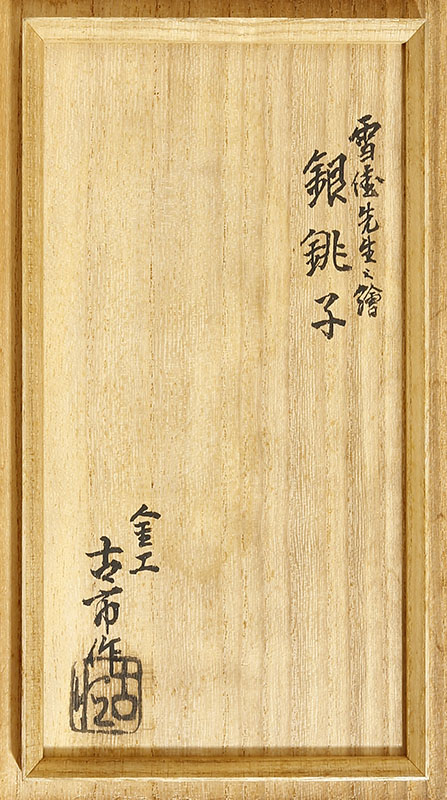 雪佳先生之繪
銀銚子
金工
古市作